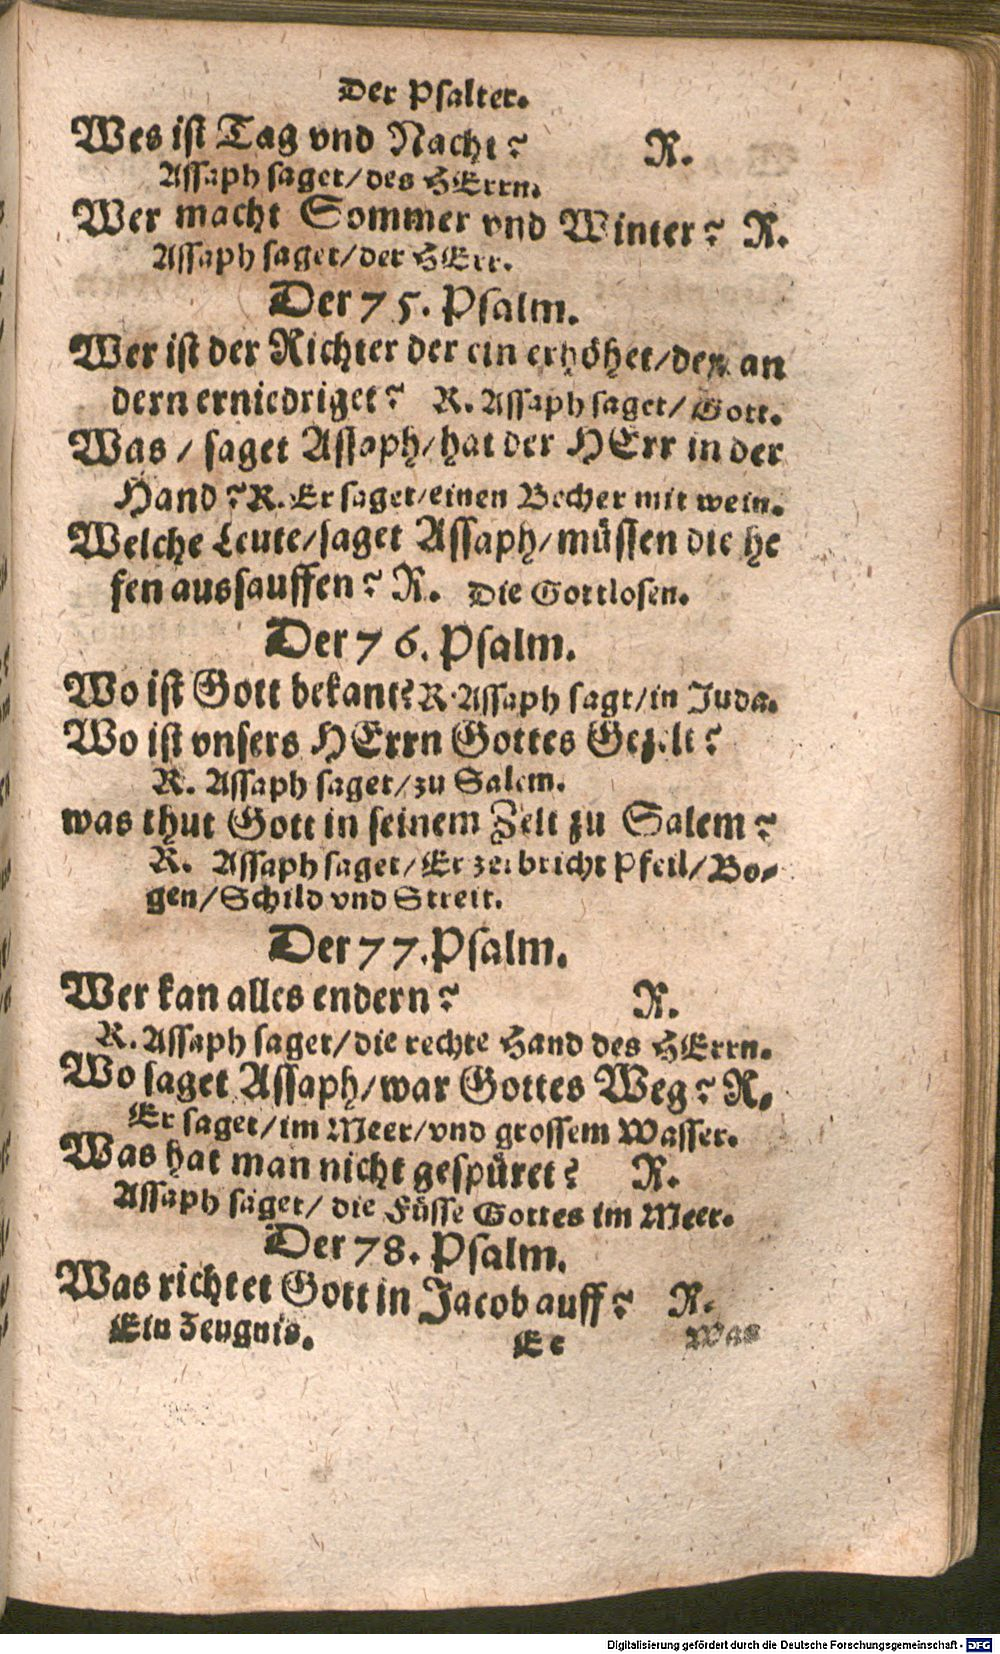 Der Psalter.
Wes ist Tag vnd Nacht? R.
Assaph saget/des HErrn.
Wer macht Sommer vnd Winter? R.
Assaph saget/der HErr.
Der 75. Psalm.
Wer ist der Richter der ein erhöhet/den an
dern erniedriget? R. Assaph saget/Gott.
Was/saget Assaph/hat der HErr in der
Hand? R. Er saget/einen Becher mit wein.
Welche Leute/saget Assaph/müssen die he
fen aussauffen? R. Die Gottlosen.
Der 76. Psalm.
Wo ist Gott bekant? R. Assaph sagt/in Juda.
Wo ist vnsers HErrn Gottes Gezelt?
R. Assaph saget/zu Salem.
was thut Gott in seinem Zelt zu Salem?
R. Assaph saget/Er zerbricht Pfeil/Bo-
gen/Schild vnd Streit.
Der 77. Psalm.
Wer kan alles endern? R.
R. Assaph saget/die rechte Hand des HErrn.
Wo saget Assaph/war Gottes Weg? R.
Er saget/im Meer/vnd grossem Wasser.
Was hat man nicht gespüret? R.
Assaph saget/die Füsse Gottes im Meer.
Der 78. Psalm.
Was richtet Gott in Jacob auff? R.
Ein Zeugnis. Ee Was
Digitalisierung gefördert durch die Deutsche Forschungsgemeinschaft - DFG